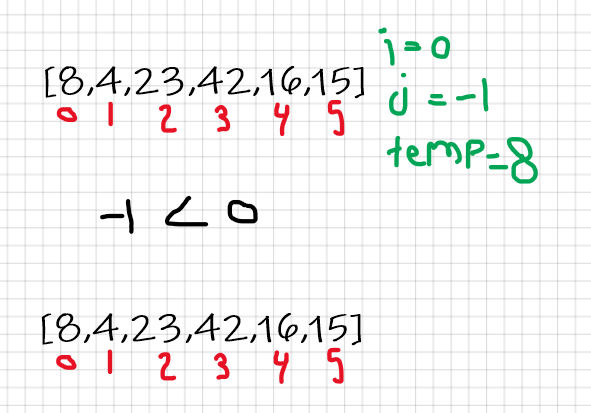 [8,4,23,42,16,15]
0 1 2 3 4 5
i=0
j=-1
temp=8
-1 < 0
[8,4,23,42,16,15]
0 1 2 3 4 5